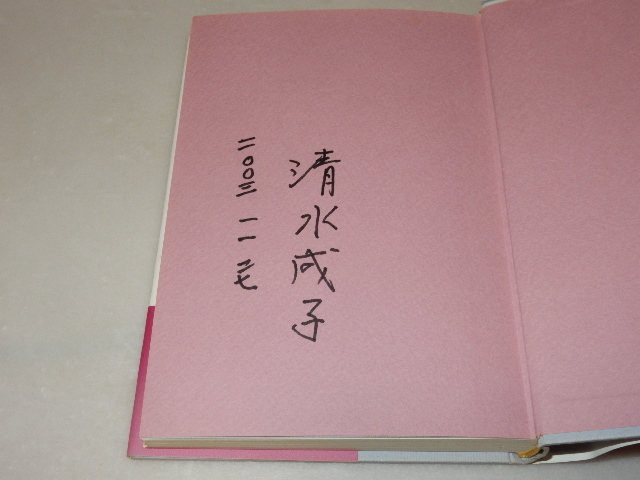 清水成子
二〇〇三 一一 二七